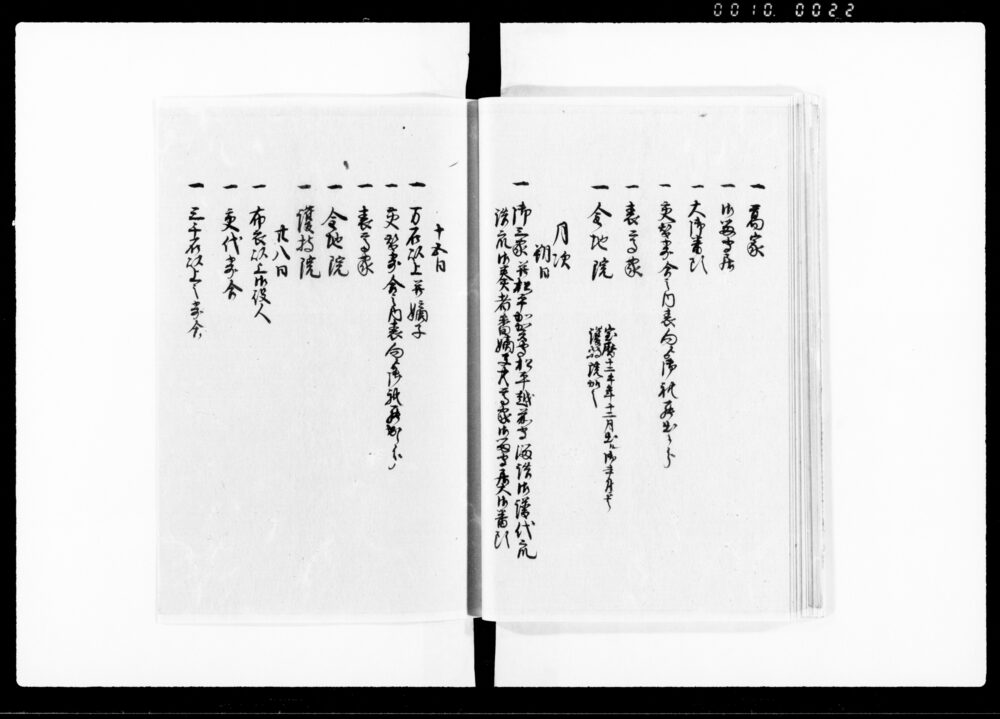 0010 0022
一 高家
一 御留守居
一 大御番頭
一 交替寄合之内表向御礼罷出候分
一 表高家
一 金地院
宝暦十三年十二月
護持院
月次
朔日
一 御三家并松平加賀守松平越前守溜詰御譜代衆
詰衆御奏者番嫡子共高家御留守居大御番頭
十五日
一 万石以上并嫡子
一 交替寄合之内表向御礼罷出候分
一 表高家
一 金地院
一 護持院
廿八日
一 布衣以上御役人
一 交代寄合
一 三千石以上之寄合